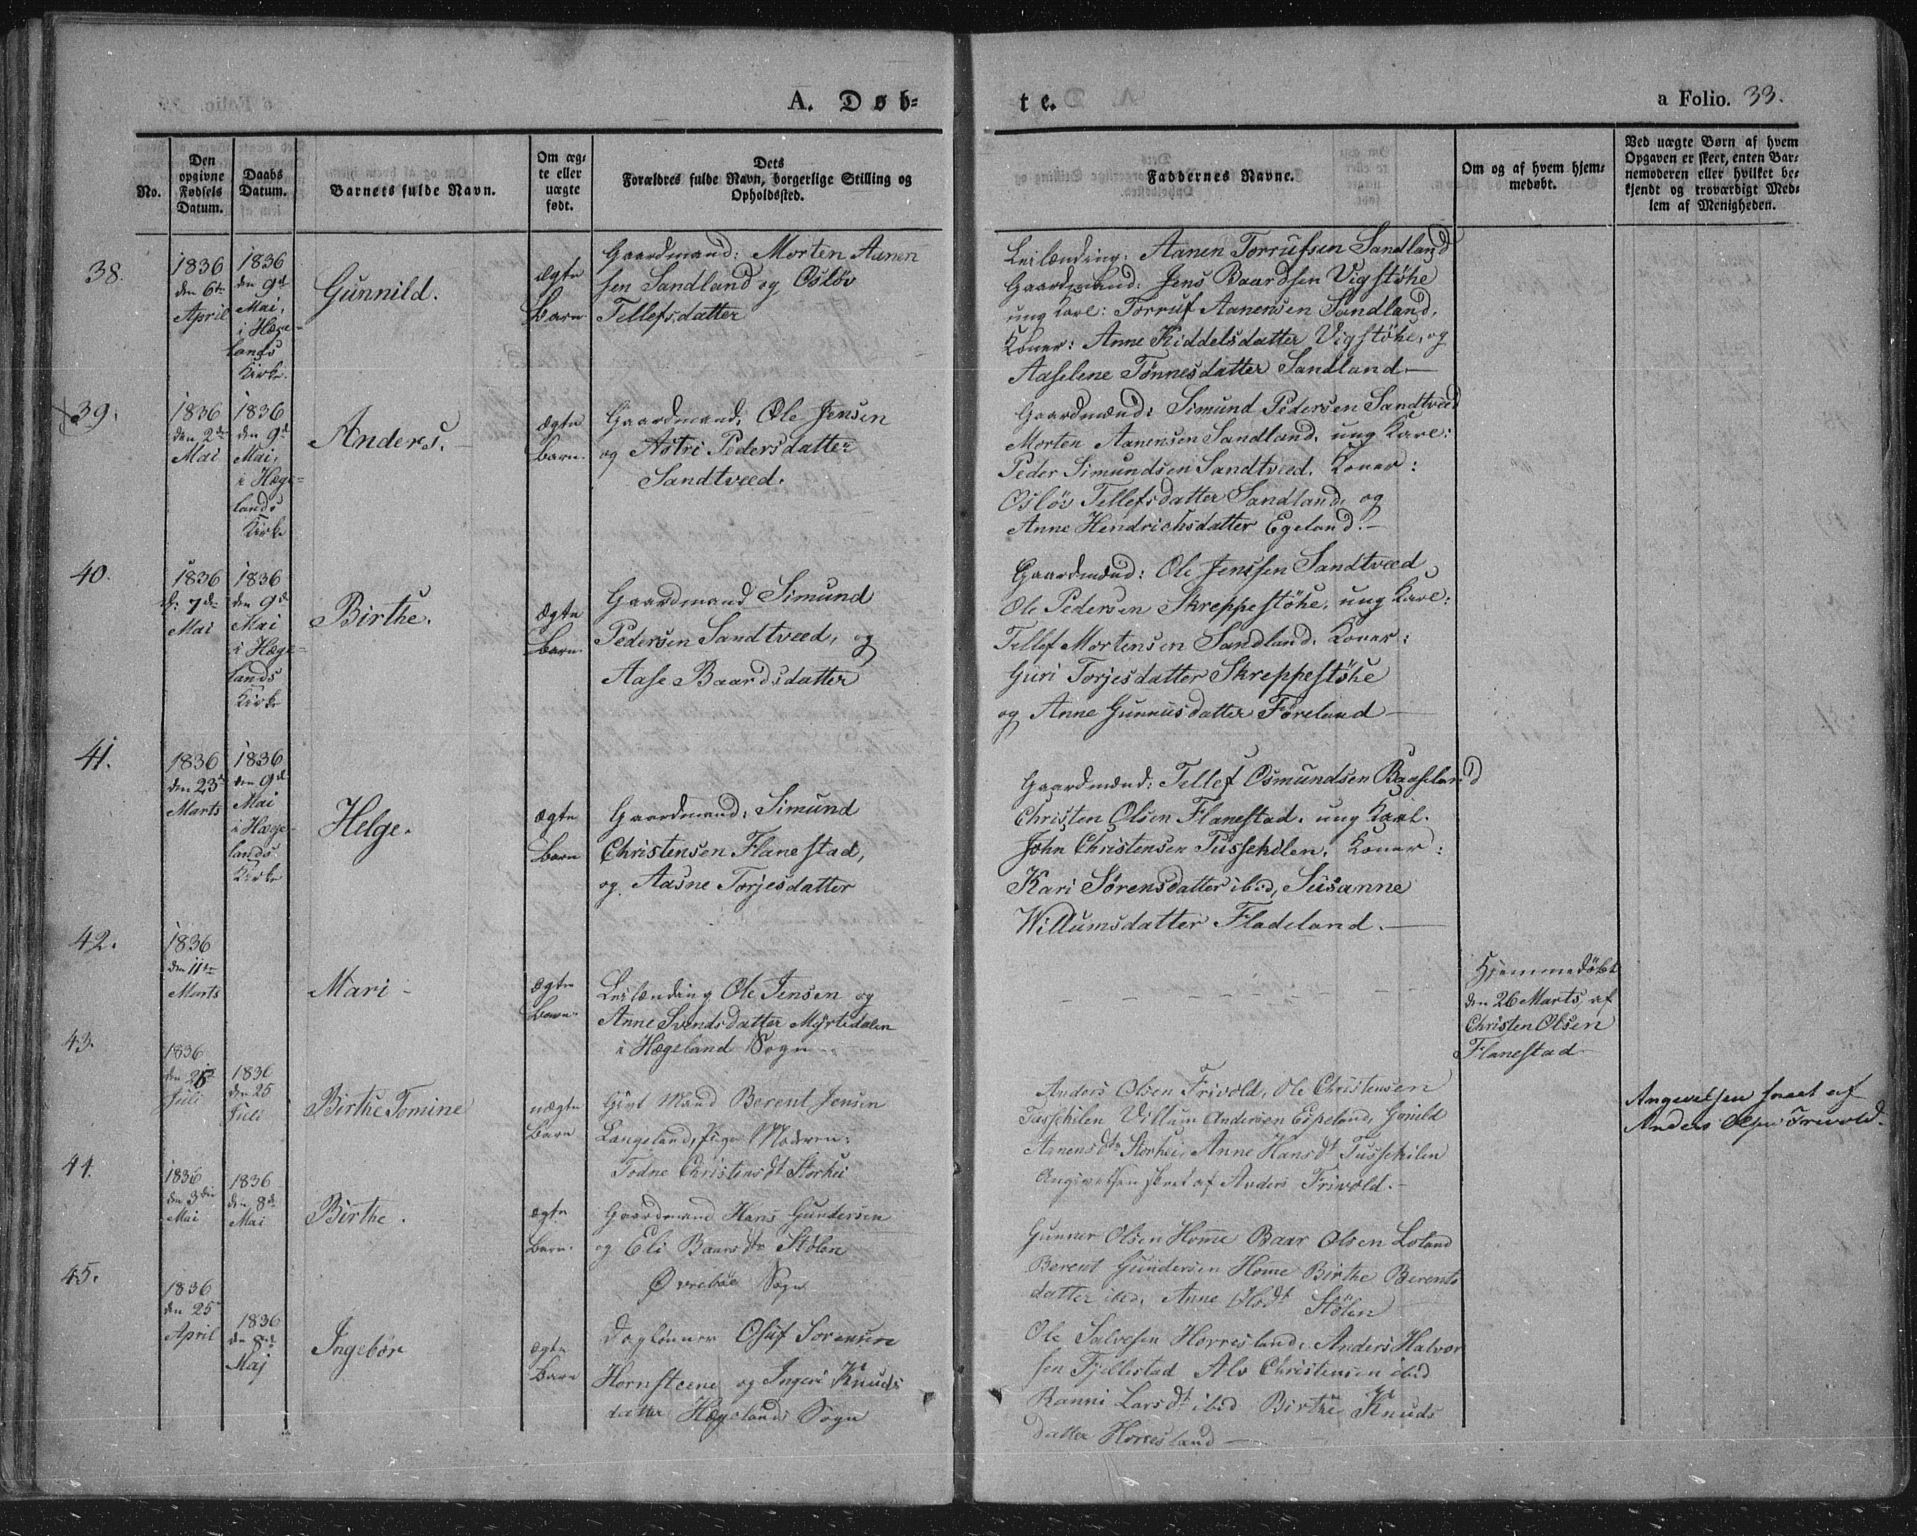 A. Døb-
te.
a Folio. 33.
No.
Den opgivne Fødsels Datum.
Daabs Datum.
Barnets fulde Navn.
Om æg-
te eller
uægte
født.
Dets
Forældres fulde Navn, borgerlige Stilling og
Opholdssted.
Faddernes Navne.
Om og af hvem hjem-
medøbt.
Ved uægte Børn af hvem
Opgaven er skeet, enten Bar-
nemoderen eller hvilket be-
kjendt og troværdigt Med-
lem af Menigheden.
38.
1836
den 6te
April
1836
den 9de
Mai,
i Hæge-
lands
Kirke.
Gunnild.
ægte
Barn
Gaardmand: Morten Aanen
sen Sandland og Osløv
Tellefsdatter
Leilænding: Aanen Torrufsen Sandland
Gaardmand: Jens Baardsen Vigstøhe
ung Karl: Torruf Aanensen Sandland,
Koner: Anne Kiddelsdatter Vigstøhe, og
Aaselene Tønnesdatter Sandland.
39.
1836
den 2den
Mai
1836
den 9de
Mai,
i Hæge-
lands
Kirke
Anders.
ægte
Barn.
Gaardmand: Ole Jensen
og Astri Pedersdatter
Sandtveed.
Gaardmænd: Simund Pedersen Sandtveed
Morten Aanensen Sandland, ung Karl:
Peder Simundsen Sandtveed, Koner:
Osløv Tellefsdatter Sandland, og
Anne Hendrichsdatter Egeland.
40.
1836
d: 7de
Mai
1836
den 9de
Mai
i Hæge-
lands
Kirke
Birthe.
ægte
Barn.
Gaardmand Simund
Pedersen Sandtveed, og
Aase Baardsdatter
Gaardmænd: Ole Jenssen Sandtveed
Ole Pedersen Skreppestøhe, ung Karl:
Tellef Mortensen Sandland, Koner:
Guri Torjesdatter Skreppestøhe
og Anne Gunnusdatter Føreland
41.
1836
den 23de
Marts
1836
den 9de
Mai
i Hæge-
lands
Kirke
Helge.
ægte
Barn
Gaardmand: Simund
Christensen Flanestad,
og Aasne Torjesdatter
Gaardmænd: Tellef Osmundsen
Christen Olsen Flanestad, ung Karl.
John Christensen Tusseskilen, Koner:
Kari Sørensdatter ibid, Susanne
Willumsdatter Fladeland.
42.
1836
den 11te
Marts
Mari
ægte
Barn.
Leilænding Ole Jensen og
Anne Svendsdatter Myrtedalen
i Hægeland Sogn
Hjemmedøbt
den 26 Marts af
Christen Olsen
Flanestad
43.
1836
den
Juli
1836
den 25
Juli
Birthe Tomine
uægte
Barn
Givt Mand Berent Jensen
Langeland, Pige Moderen:
Todne Christensdt Storhei
Anders Olsen Frivold, Ole Christensen
Tusseskilen Villum Andersen Espeland, Gunild
Arnensdtr Storhei, Anne Hansdt Tusseskilen
Angivelsen skeet af Anders Frivold.
Angivelsen skeet af
Anders Olsen Frivold.
44.
1836
den 3die
Mai
1836
den 8de
Mai
Birthe.
ægte
Barn.
Gaardmand Hans Gundersen
og Eli Baarsdtr Stølen
Øvrebøe Sogn
Gunner Olsen Home Baar Olsen Loland
Berent Gundersen Home Birthe Berents
datter ibid, Anne Stølen
45.
1836
den 25
April
1836
den 8de
Maj
Ingebor
ægte
Barn
Dagløner Osuf Sørensen
Hornsteene og Ingeri Knuds
datter Hægelands Sogn
Ole Salvesen Horresland, Anders Halvor
sen Fjellestad Als Christensen ibid
Ranni Larsdt ibid Birthe Knuds
datter Horresland